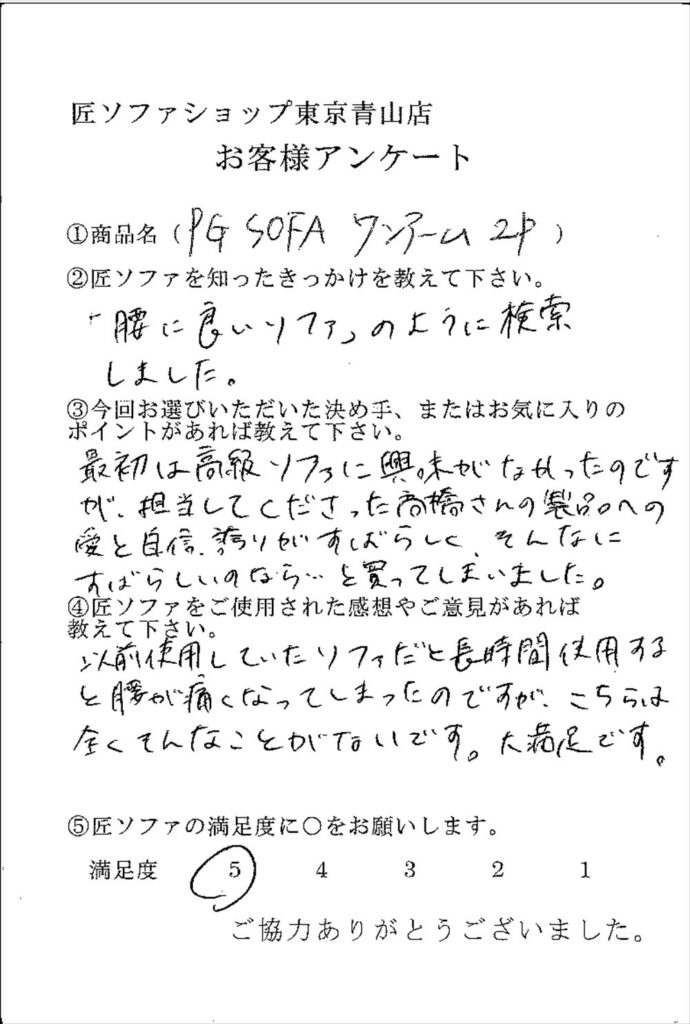 匠ソファショップ東京青山店
お客様アンケート
①商品名（PG SOFA ワンアーム 2P）
②匠ソファを知ったきっかけを教えて下さい。
「腰に良いソファ」のように検索
しました。
③今回お選びいただいた決め手、またはお気に入りの
ポイントがあれば教えて下さい。
最初は高級ソファに興味がなかったのです
が、担当してくださった高橋さんの製品への
愛と自信、誇りがすばらしく、そんなに
すばらしいのなら…と買ってしまいました。
④匠ソファをご使用された感想やご意見があれば
教えて下さい。
以前使用していたソファだと長時間使用する
と腰が痛くなってしまったのですが、こちらは
全くそんなことがないです。大満足です。
⑤匠ソファの満足度に○をお願いします。
満足度 5 4 3 2 1
ご協力ありがとうございました。